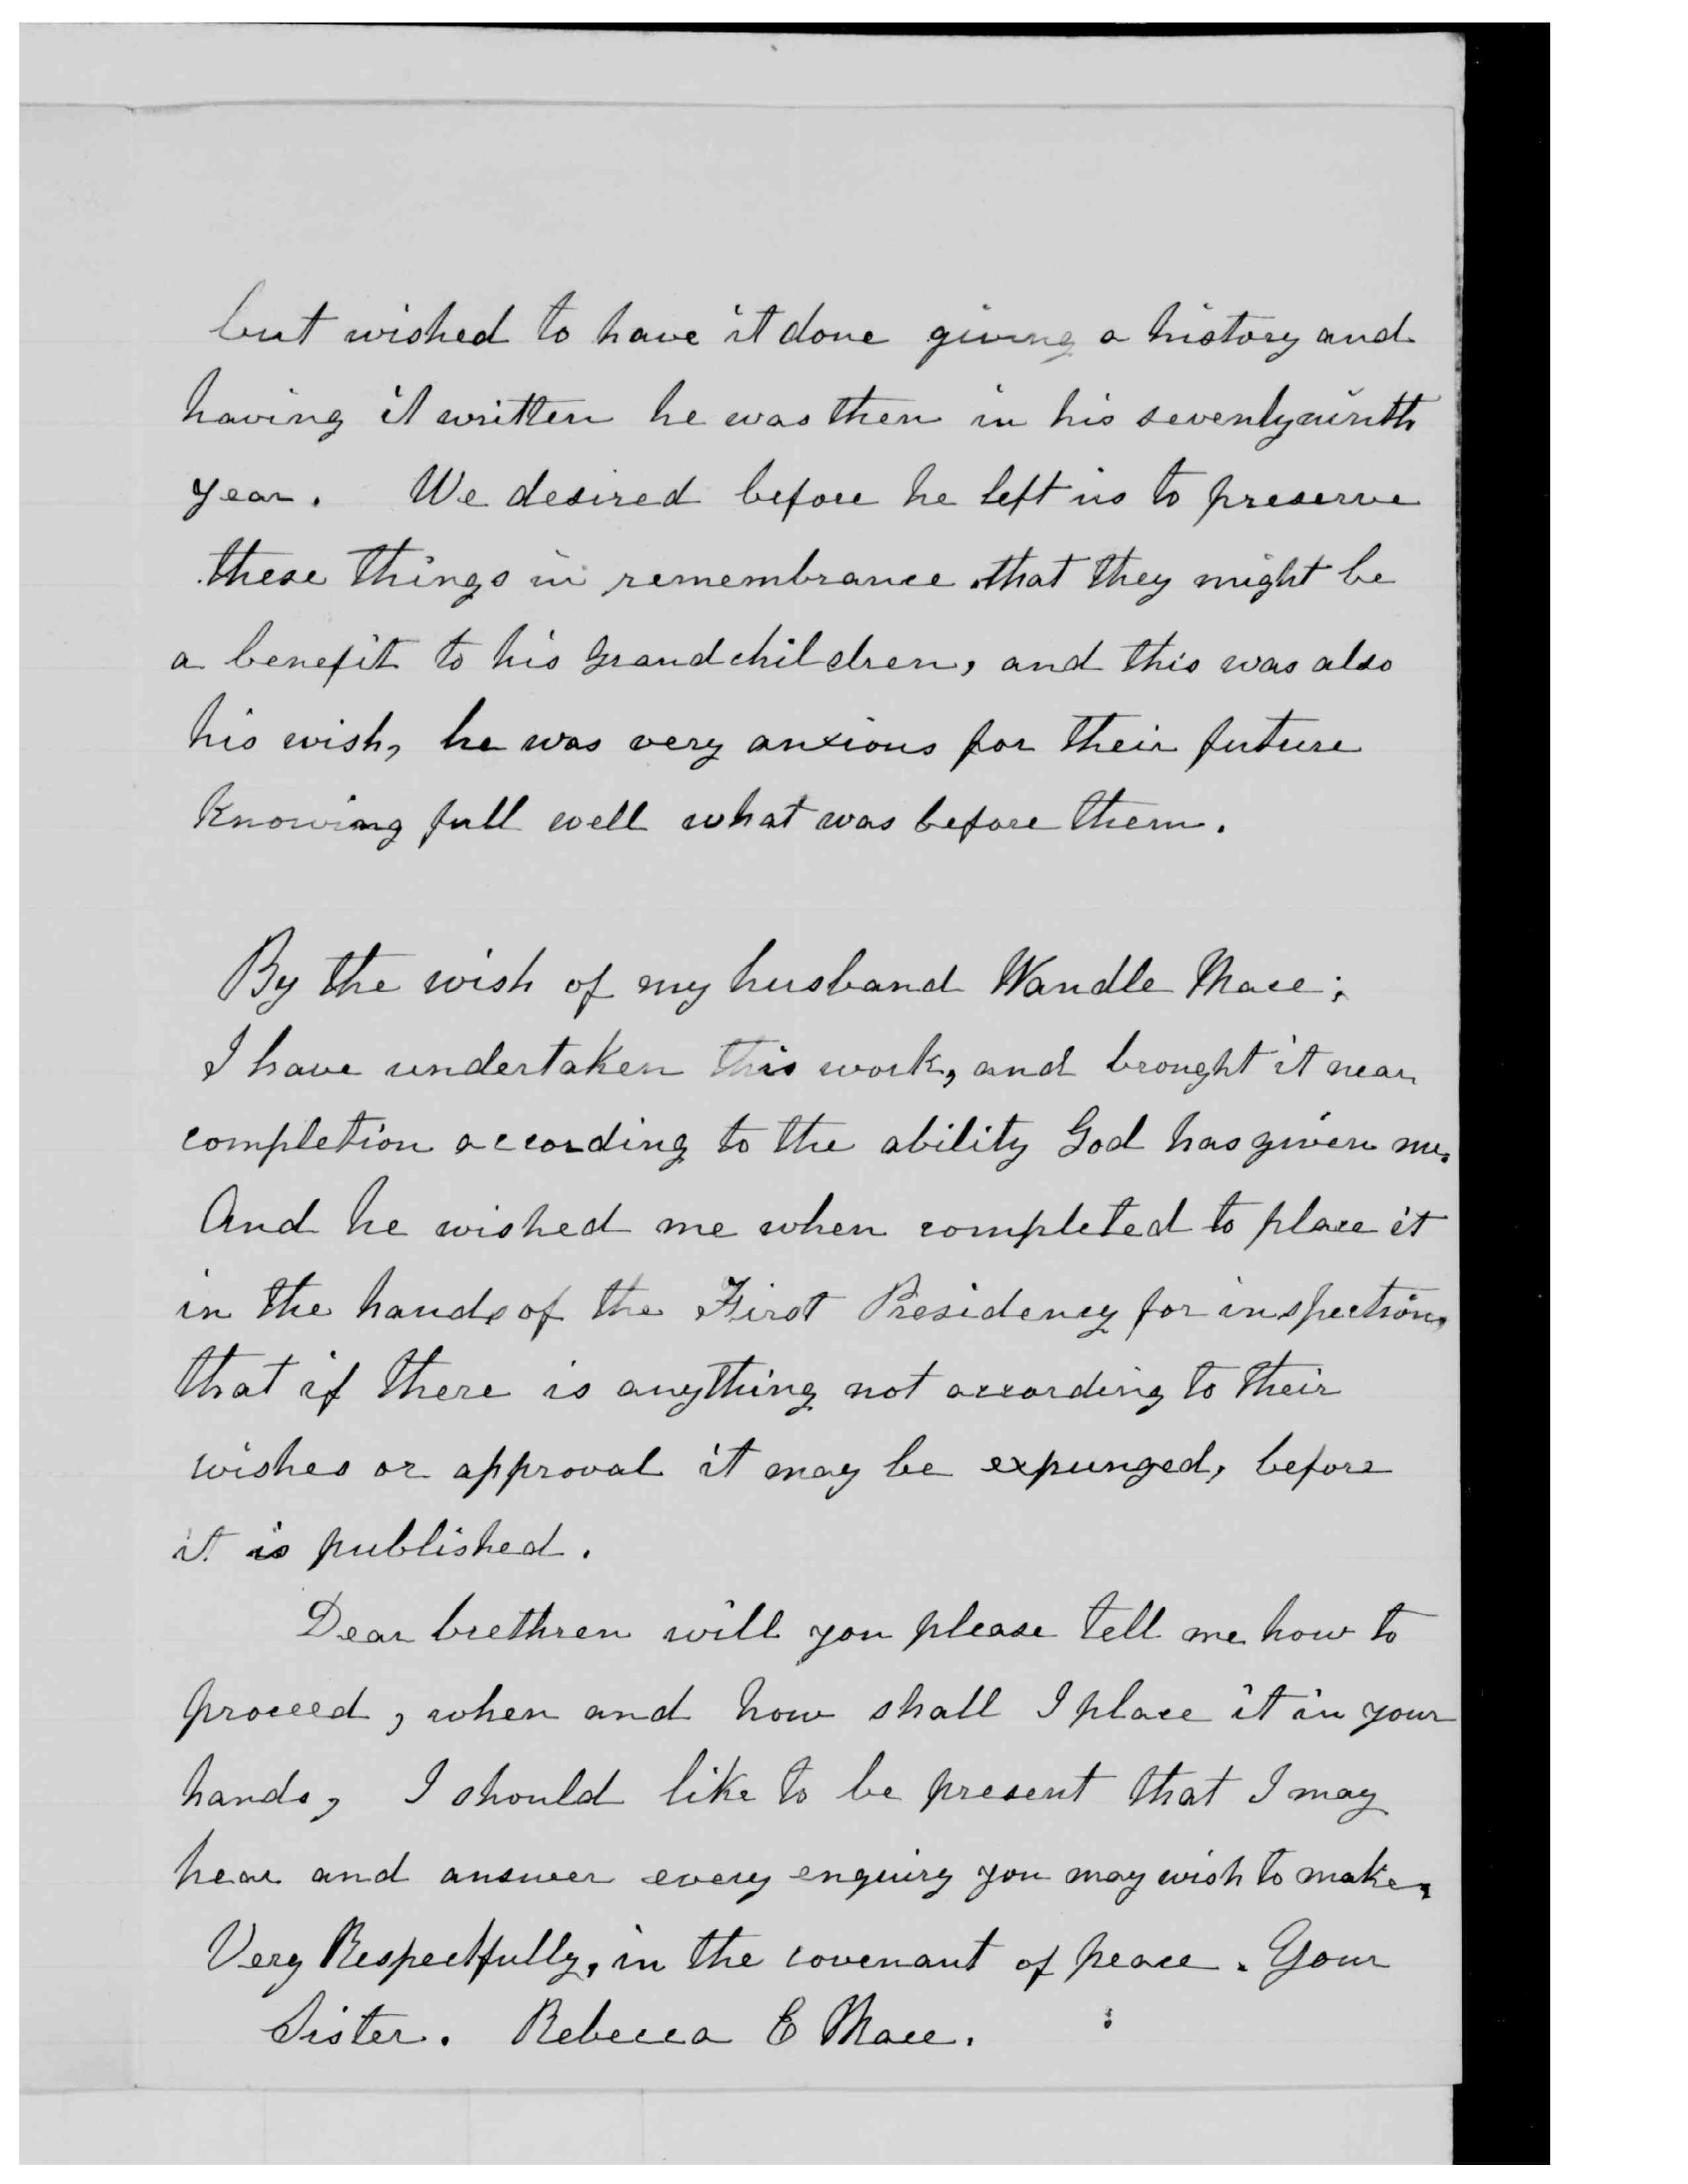 but wished to have it done giving a history and
having it written he was then in his seventyninth
year. We desired before he left us to preserve
these things in remembrance that they might be
a benefit to his grandchildren, and this was also
his wish, he was very anxious for their future
knowing full well what was before them.
By the wish of my husband Wandle Mace;
I have undertaken this work, and brought it near
completion according to the ability God has given me.
And he wished me when completed to place it
in the hands of the First Presidency for inspection,
that if there is anything not according to their
wishes or approval it may be expunged, before
it is published.
Dear brethren will you please tell me how to
proceed, when and how shall I place it in your
hands, I should like to be present that I may
hear and answer every enquiry you may wish to make.
Very Respectfully, in the covenant of peace. Your
Sister. Rebecca E Mace.